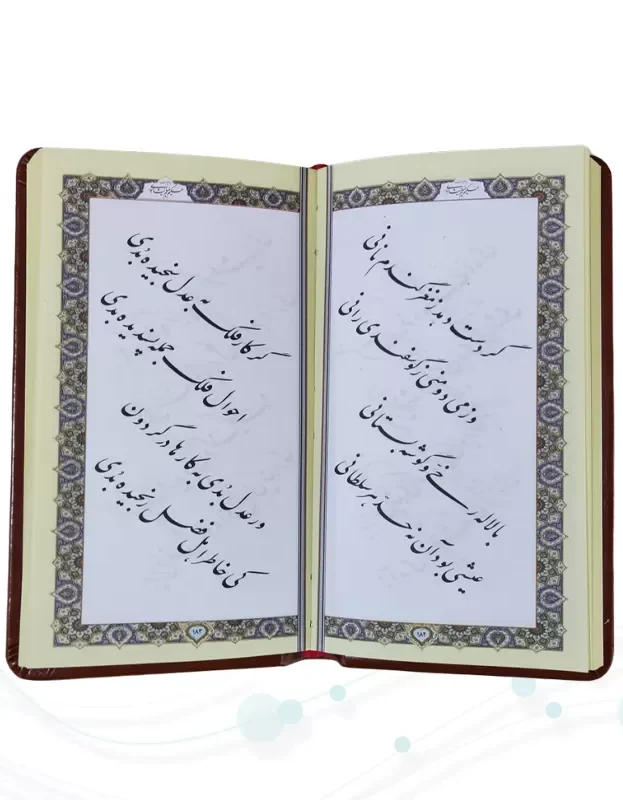 گر دست دهد ز مغز گندم نانی
وز می دو منی ز گوسفندی رانی
با لاله رخی و گوشه بستانی
عیشی بود آن نه حدّ هر سلطانی
گر کار فلک به عدل سنجیده بُدی
احوال فلک جمله پسندیده بدی
ور عدل بُدی به کارها در گردون
کی خاطر اهل فضل رنجیده بُدی
۱۸۳